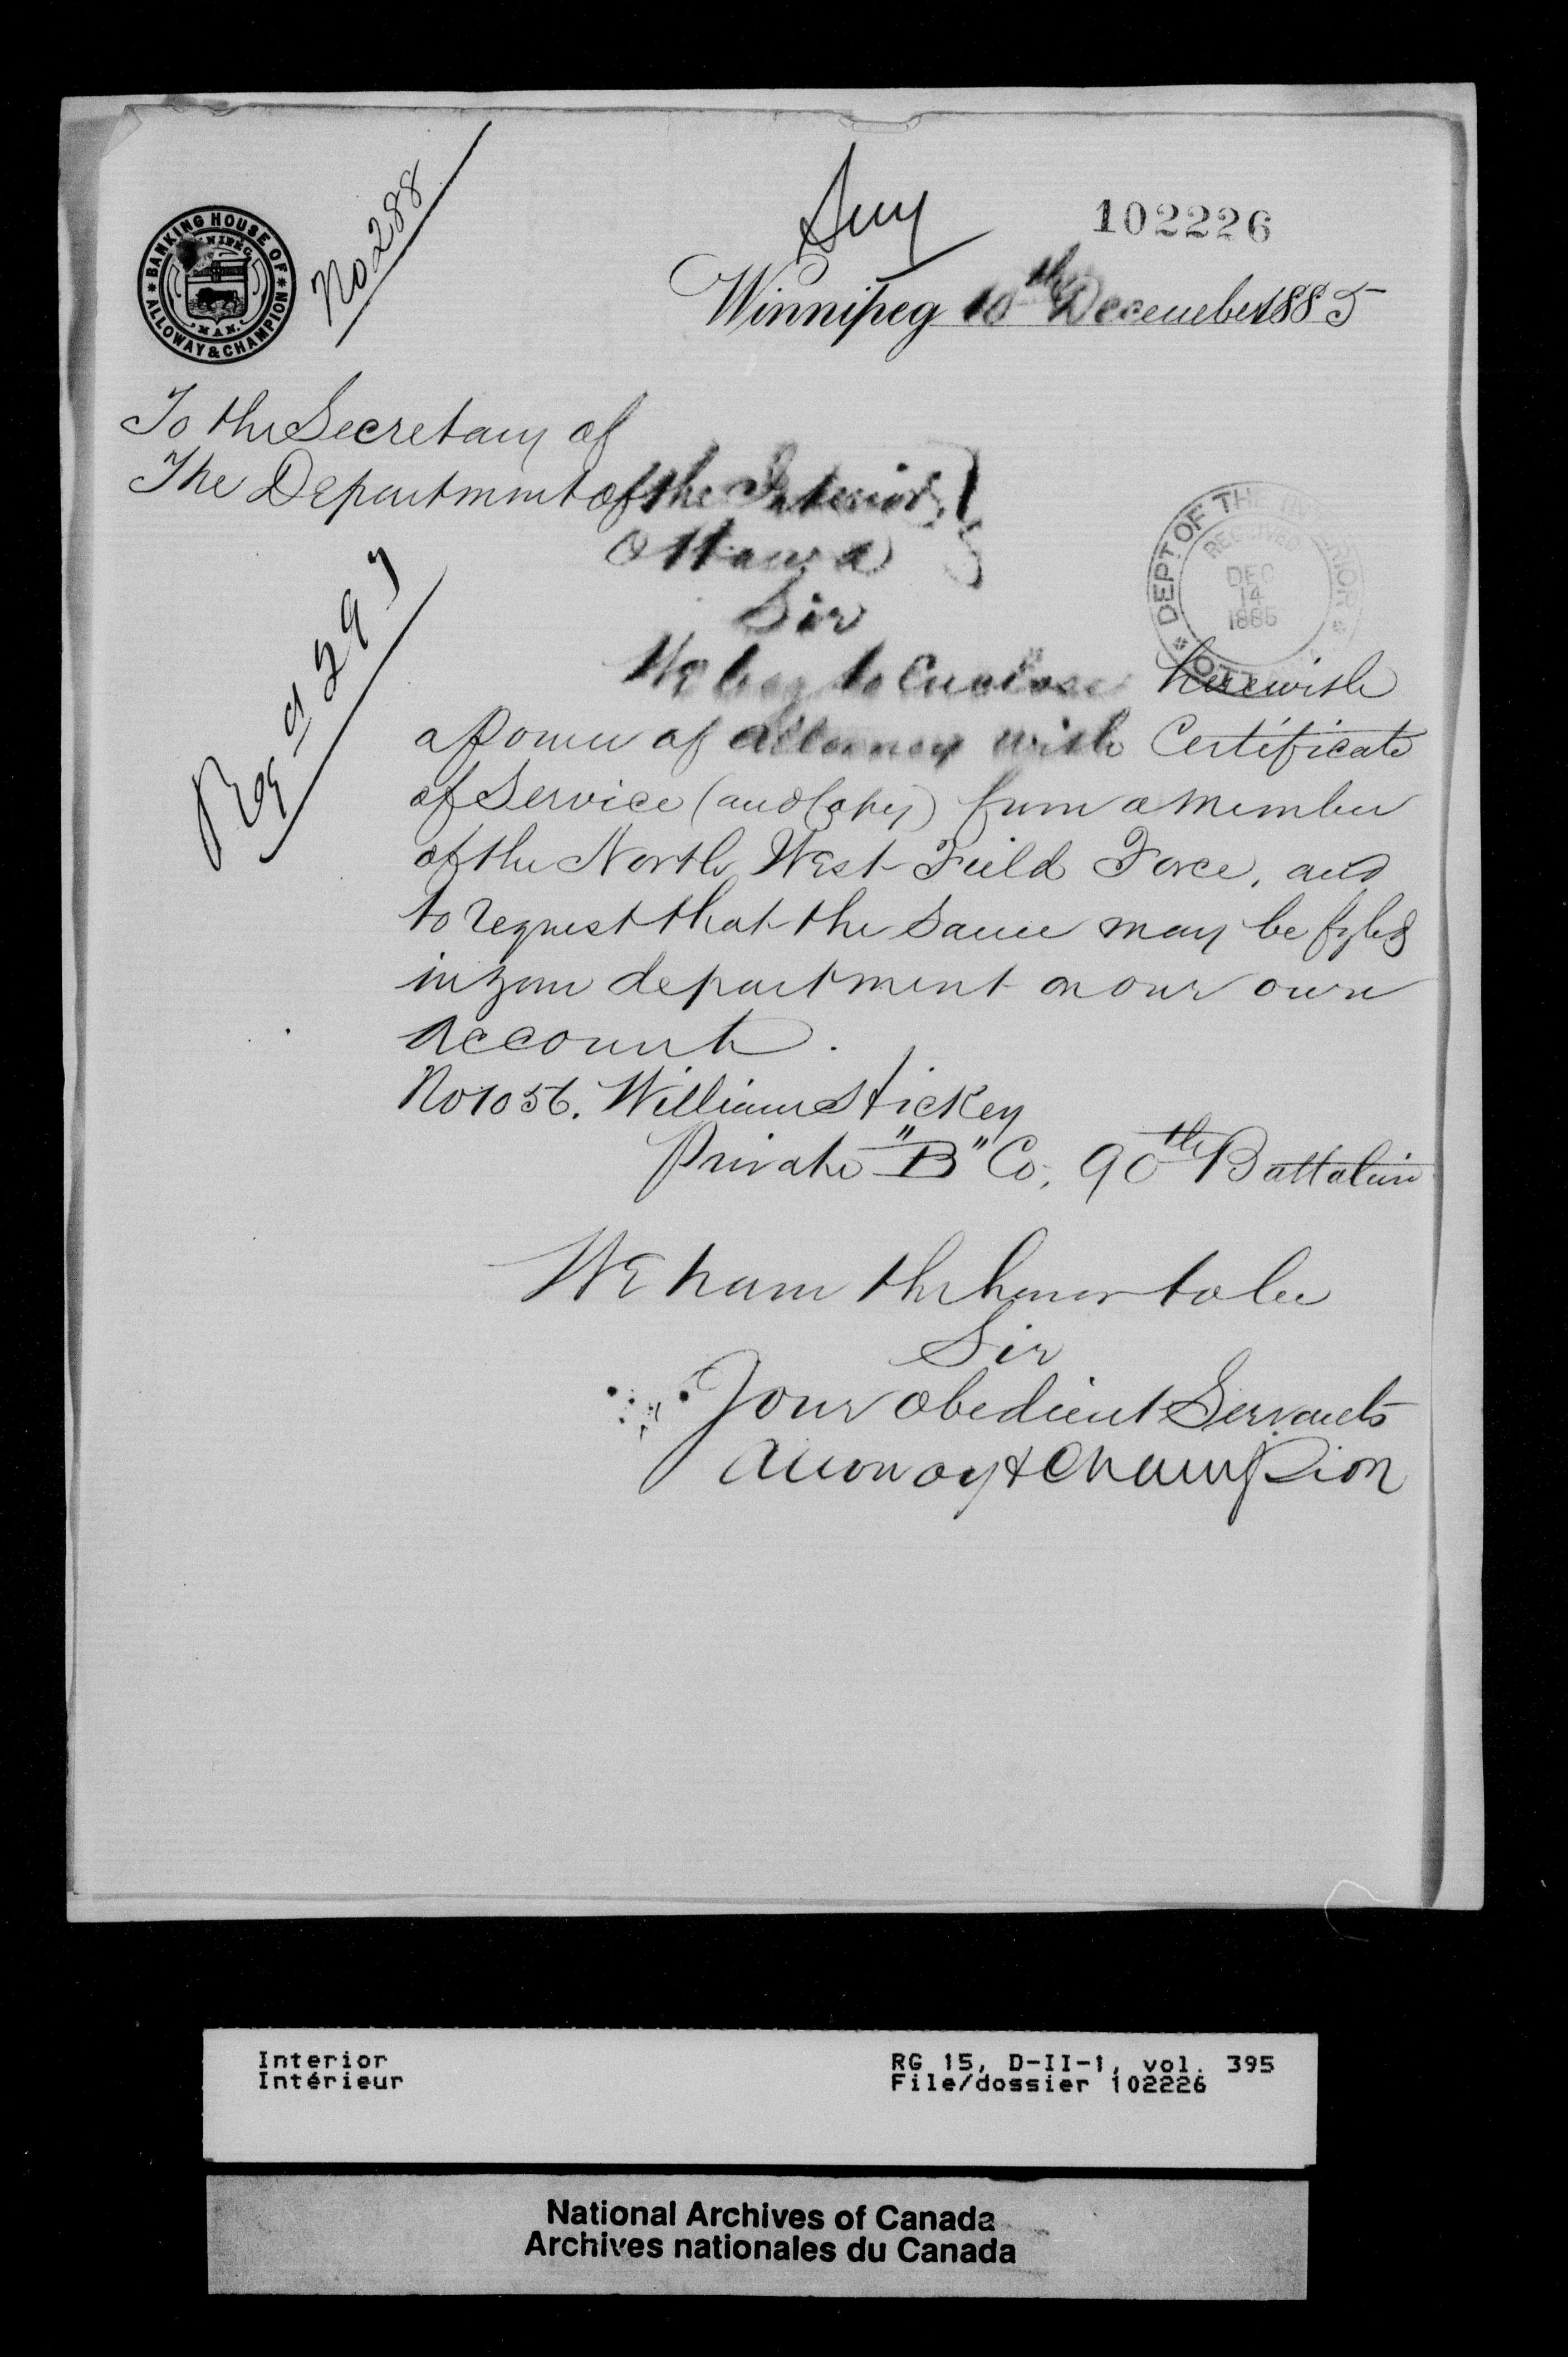 BANKING HOUSE OF ALLOWAY & CHAMPION
WINNIPEG
MAN.
No 288
102226
Winnipeg 10th December 1885
To the Secretary of
The Department of the Interior,
Ottawa
DEPT OF THE INTERIOR OTTAWA
RECEIVED
DEC
14
1885
Sir
We beg to Enclose herewith
a Power of Attorney with Certificate
of Service (and Copy) from a member
of the North West Field Force, and
to request that the same may be fyled
in your department on our own
account.
No 1056. William Stickey
Private "B" Co, 90th Battalion
We have the honor to be
Sir
Your obedient Servants
Alloway & Champion
Interior
Intérieur
RG 15, D-II-1, vol. 395
File/dossier 102226
National Archives of Canada
Archives nationales du Canada